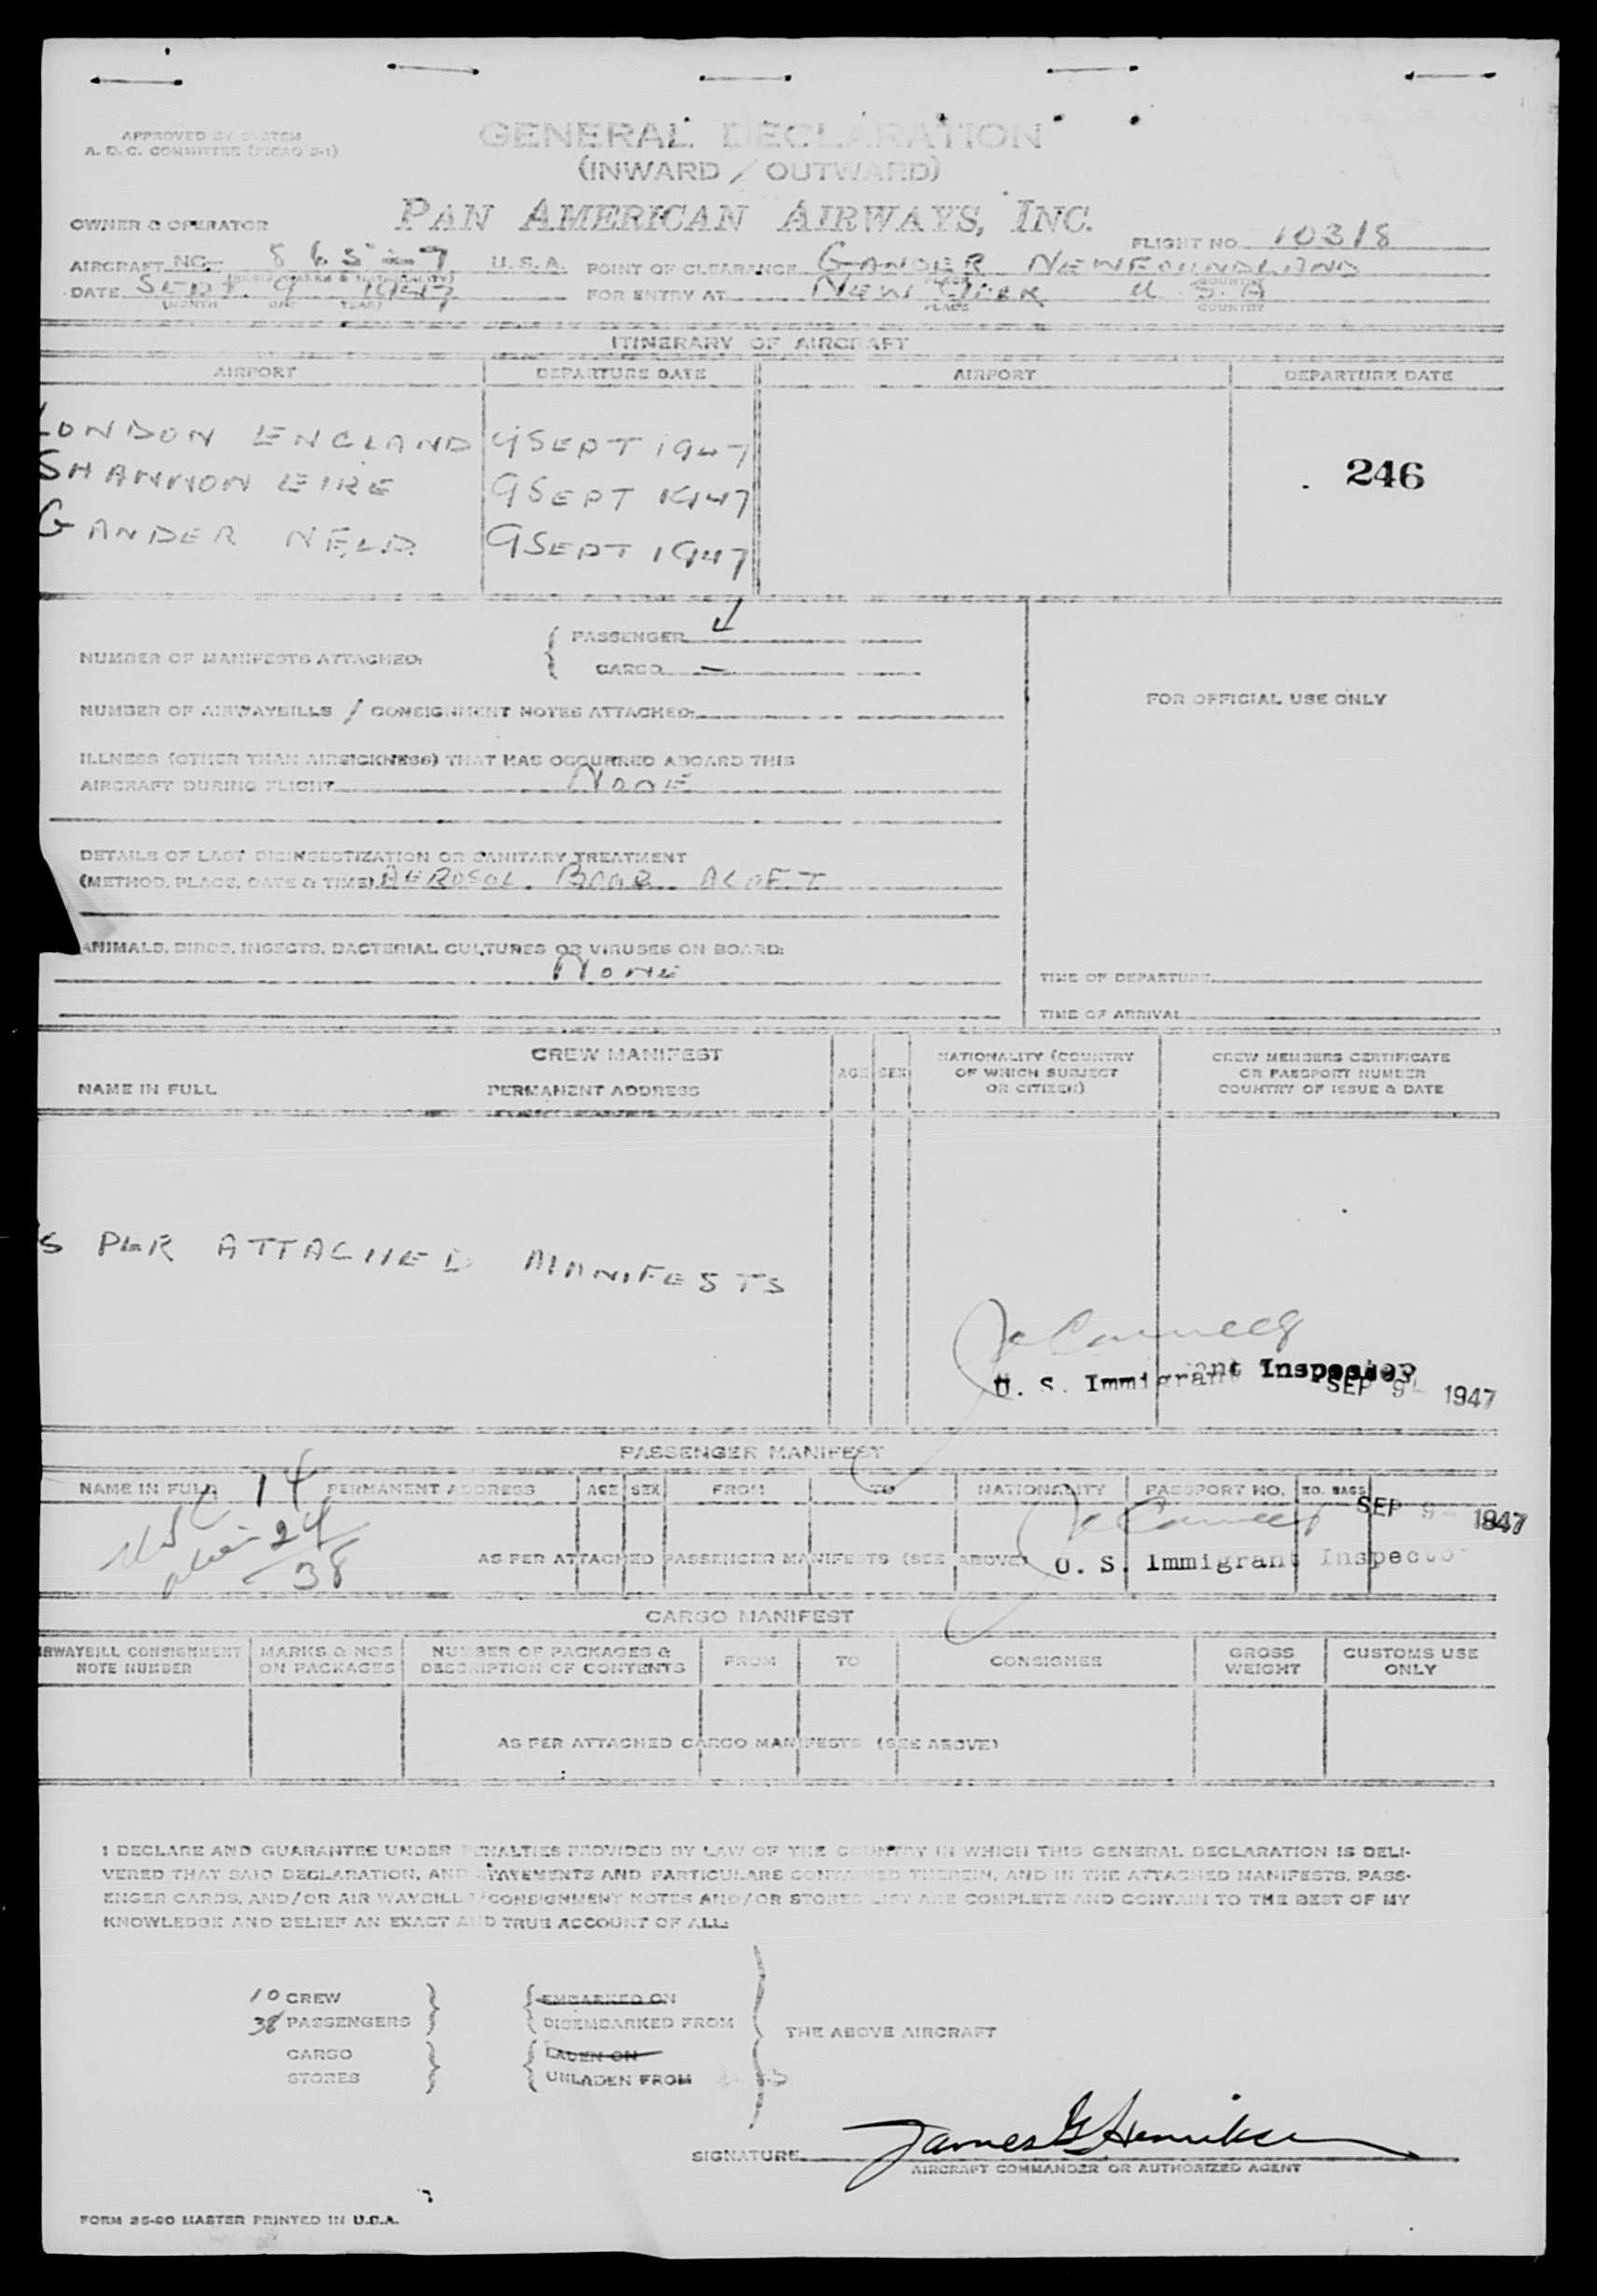 APPROVED BY SYSTEM
A. D. C. COMMITTEE (PICAO D-1)
GENERAL DECLARATION
(INWARD / OUTWARD)
OWNER & OPERATOR PAN AMERICAN AIRWAYS, INC.
FLIGHT NO. 10318
AIRCRAFT NC. U.S.A. POINT OF CLEARANCE GANDER NEWFOUNDLAND
DATE SEPT. 9 1947 FOR ENTRY AT NEW YORK U.S.A
(MONTH DAY YEAR) PLACE COUNTRY
ITINERARY OF AIRCRAFT
AIRPORT DEPARTURE DATE AIRPORT DEPARTURE DATE
LONDON ENGLAND 9 SEPT 1947
246
SHANNON EIRE 9 SEPT 1947
GANDER NFLD. 9 SEPT 1947
PASSENGER
NUMBER OF MANIFESTS ATTACHED:
CARGO —
FOR OFFICIAL USE ONLY
NUMBER OF AIRWAYBILLS / CONSIGNMENT NOTES ATTACHED:
ILLNESS (OTHER THAN AIRSICKNESS) THAT HAS OCCURRED ABOARD THIS
AIRCRAFT DURING FLIGHT NONE
DETAILS OF LAST DISINSECTIZATION OR SANITARY TREATMENT
(METHOD, PLACE, DATE & TIME) AEROSOL BOMB ALOFT
ANIMALS, BIRDS, INSECTS, BACTERIAL CULTURES OR VIRUSES ON BOARD:
NONE
TIME OF DEPARTURE
TIME OF ARRIVAL
CREW MANIFEST
NAME IN FULL PERMANENT ADDRESS AGE SEX NATIONALITY (COUNTRY OF WHICH SUBJECT OR CITIZEN) CREW MEMBERS CERTIFICATE OR PASSPORT NUMBER COUNTRY OF ISSUE & DATE
S PER ATTACHED MANIFESTS
U. S. Immigrant Inspector
SEP 9 1947
PASSENGER MANIFEST
NAME IN FULL PERMANENT ADDRESS AGE SEX FROM TO NATIONALITY PASSPORT NO. NO. BAGS
14
24
38
SEP 9 1947
AS PER ATTACHED PASSENGER MANIFESTS (SEE ABOVE)
U. S. Immigrant Inspector
CARGO MANIFEST
IRWAYBILL CONSIGNMENT NOTE NUMBER MARKS & NOS ON PACKAGES NUMBER OF PACKAGES & DESCRIPTION OF CONTENTS FROM TO CONSIGNEE GROSS WEIGHT CUSTOMS USE ONLY
AS PER ATTACHED CARGO MANIFESTS (SEE ABOVE)
I DECLARE AND GUARANTEE UNDER PENALTIES PROVIDED BY LAW OF THE COUNTRY IN WHICH THIS GENERAL DECLARATION IS DELI-
VERED THAT SAID DECLARATION, AND STATEMENTS AND PARTICULARS CONTAINED THEREIN, AND IN THE ATTACHED MANIFESTS, PASS-
ENGER CARDS, AND/OR AIR WAYBILLS/CONSIGNMENT NOTES AND/OR STORES LIST ARE COMPLETE AND CONTAIN TO THE BEST OF MY
KNOWLEDGE AND BELIEF AN EXACT AND TRUE ACCOUNT OF ALL:
10 CREW EMBARKED ON
38 PASSENGERS DISEMBARKED FROM
THE ABOVE AIRCRAFT
CARGO LADEN ON
STORES UNLADEN FROM
SIGNATURE James G Henriksen
AIRCRAFT COMMANDER OR AUTHORIZED AGENT
FORM 25-60 MASTER PRINTED IN U.S.A.